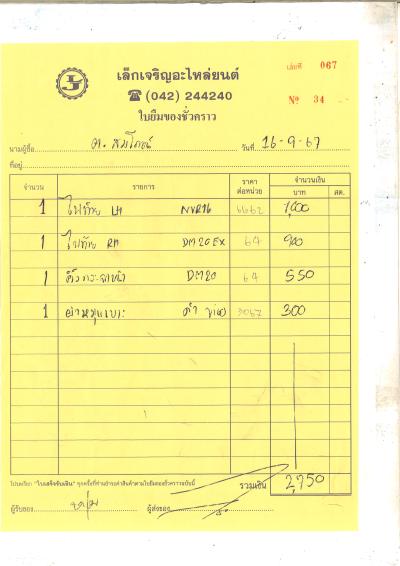 เล็กเจริญอะไหล่ยนต์
☎ (042) 244240
ใบยืมของชั่วคราว
เล่มที่ 067
№ 34
นามผู้ซื้อ วันที่ 16-9-67
ที่อยู่
จำนวน รายการ ราคาต่อหน่วย จำนวนเงิน บาท สต.
1 ไฟท้าย LH 6662 1,000
1 ไฟท้าย RH DM20EX 64 900
1 DM20 64 550
1 ดำ 300
โปรดเรียก "ใบเสร็จรับเงิน" ทุกครั้งที่ท่านชำระค่าสินค้าตามใบยืมของชั่วคราวฉบับนี้
รวมเงิน 2,750
ผู้รับของ ผู้ส่งของ